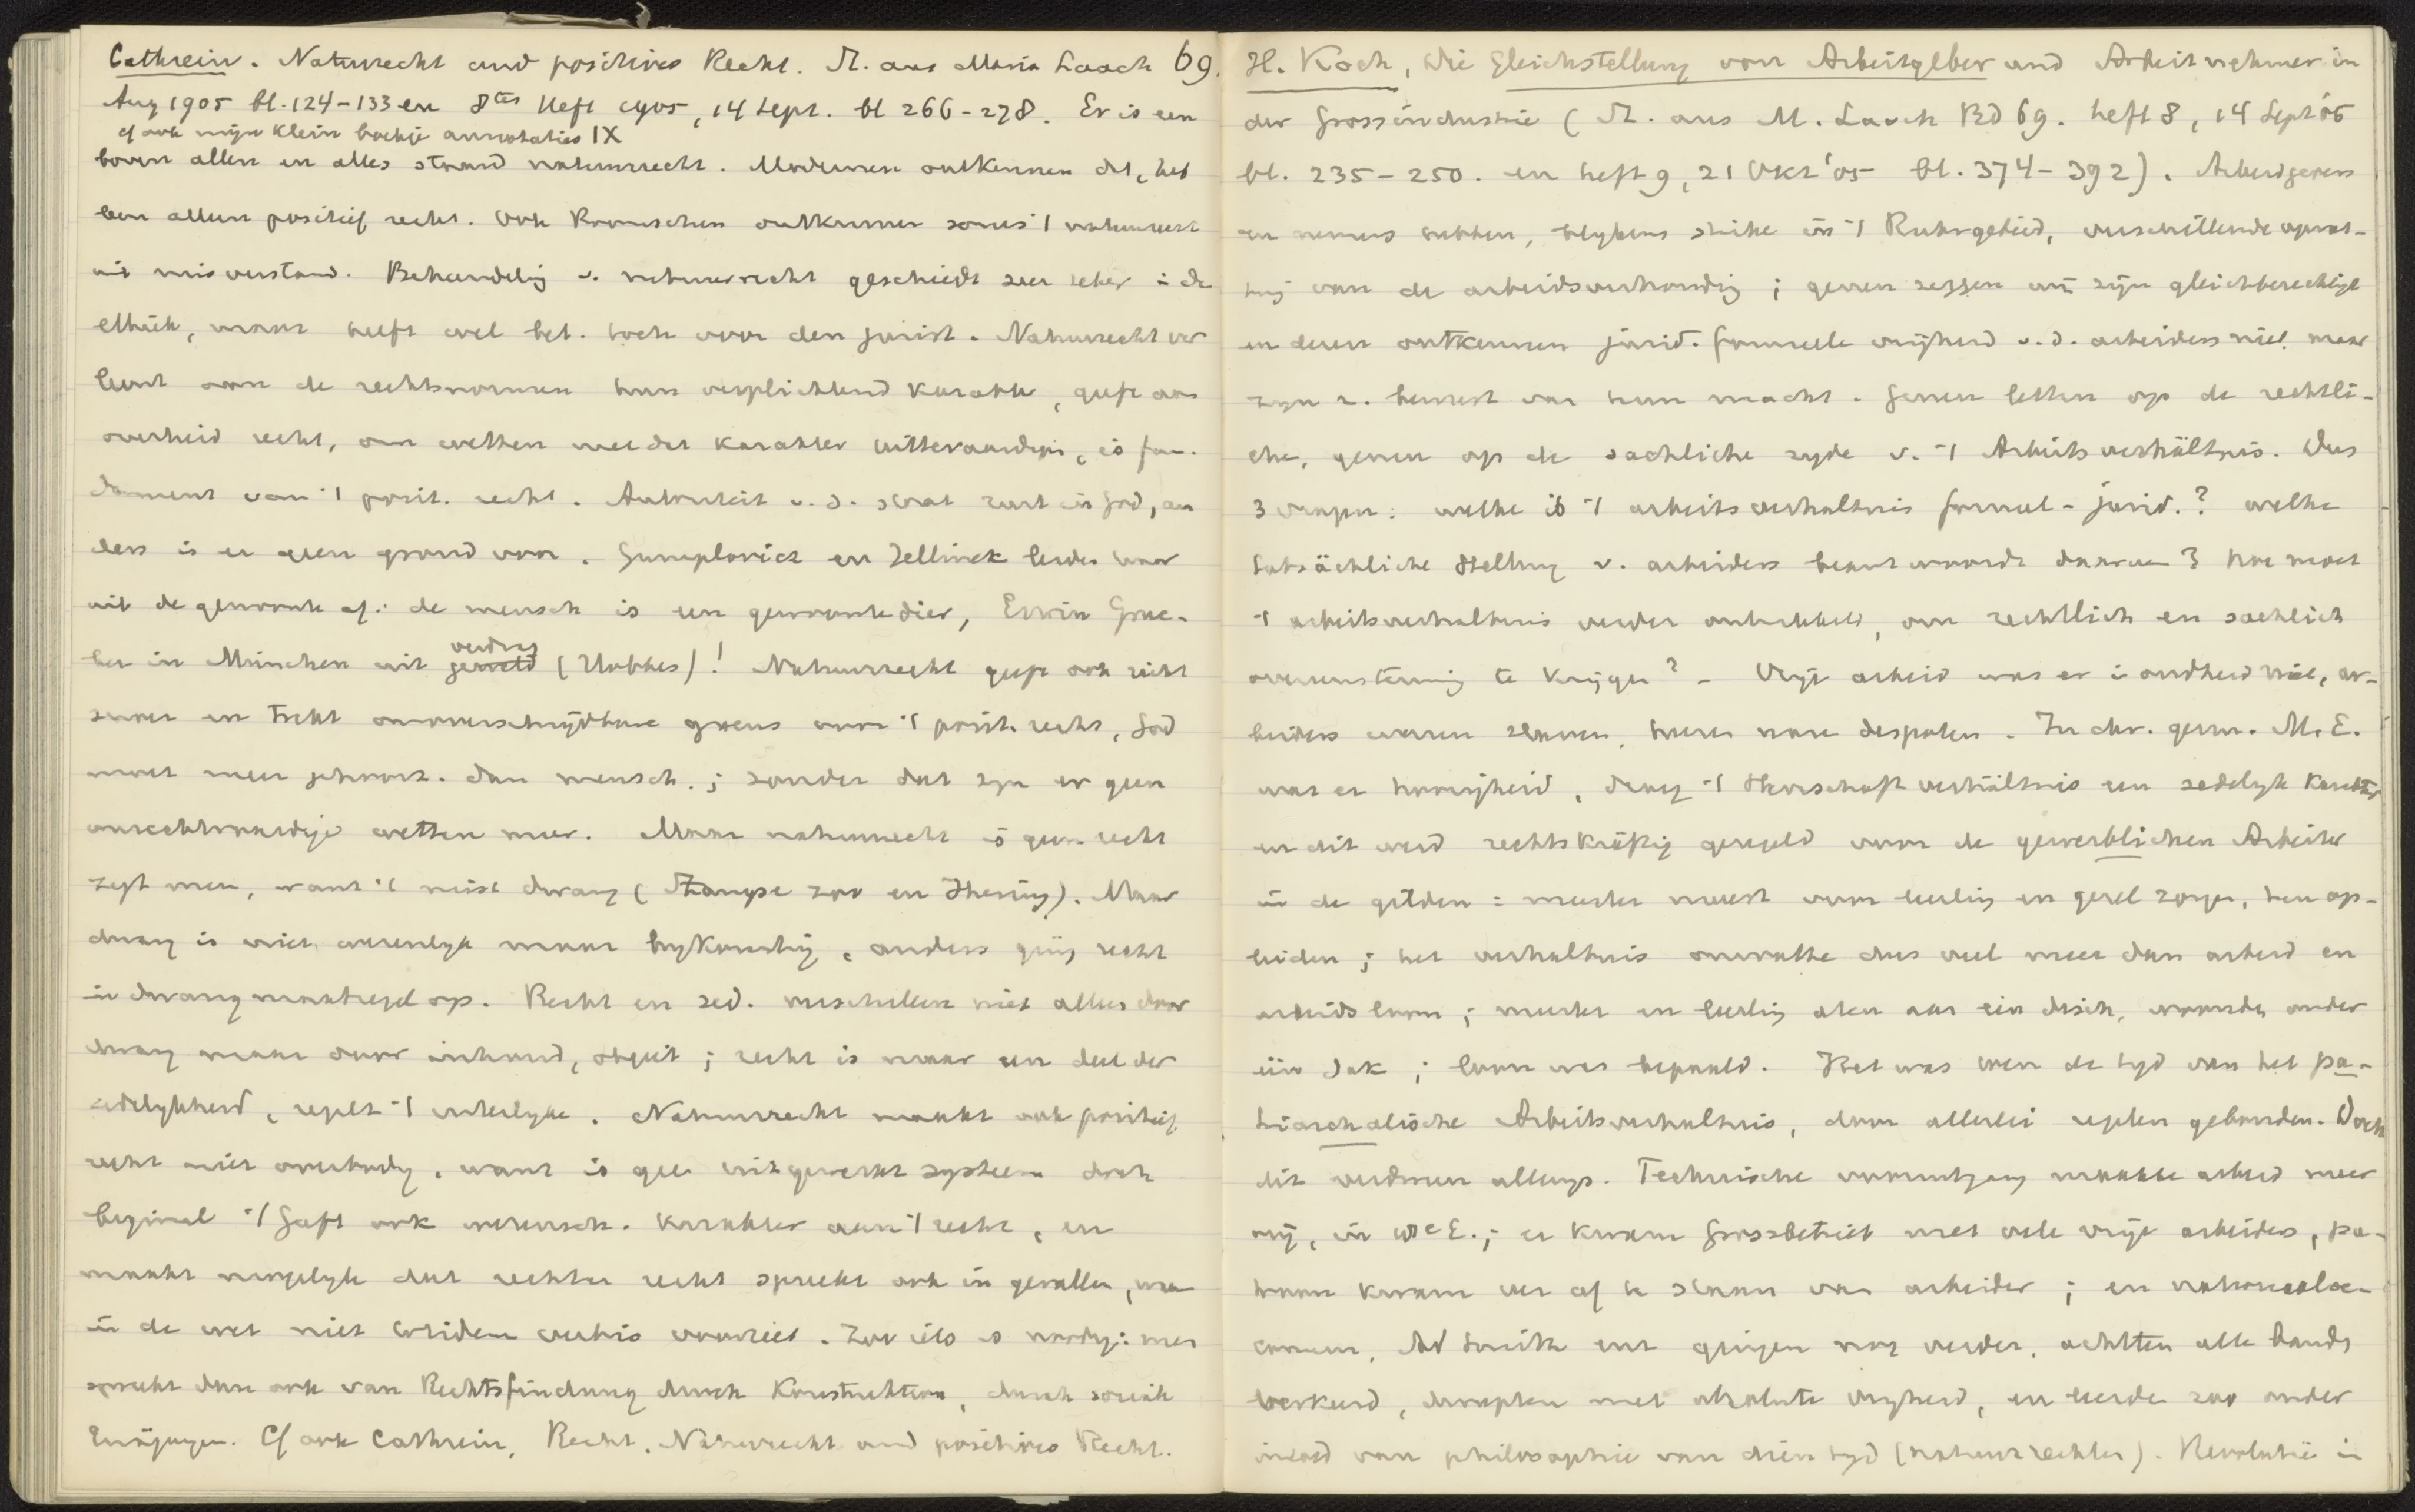 Cathrein. Naturrecht und positives Recht. St. aus Maria Laach 69.
Aug 1905 bl. 124-133 en 8tes Heft 1905, 14 Sept. bl 266-278. Er is een
cf ook mijn klein boekje annotaties IX
boven allen en alles staand natuurrecht. Modernen ontkennen dit, heb
ben alleen positief recht. Ook Roomschen ontkennen soms 't natuurrecht
uit misverstand. Behandelig v. natuurrecht geschiedt zeer zeker in de
ethiek, maar heeft wel bet. toch voor den jurist. Natuurrecht ver
leent aan de rechtsnormen hun verplichtend karakter, geeft aan
overheid recht, om wetten met dat karakter uittevaardigen, is fun-
dament van 't posit. recht. Autoriteit v. d. staat rust in God, an
ders is er geen grond voor. Gumplovicz en Jellinek leiden haar
uit de gewoonte af: de mensch is een gewoontedier, Erwin Grue-
verdrag
ber in München uit geweld (Hobbes)! Natuurrecht geeft ook richt
snoer en trekt onoverschrijdbare grens aan 't posit. recht, God
moet meer gehoorz. dan mensch.; zonder dat zijn er geen
onrechtvaardige wetten meer. Maar natuurrecht is geen recht
zegt men, want 't mist dwang (Stampe zoo en Jhering). Maar
dwang is niet wezenlijk maar bijkomstig, anders ging recht
in dwangmaatregel op. Recht en zed. verschillen niet alleen door
dwang maar door inhoud, object; recht is maar een deel der
zedelijkheid, regelt 't uiterlijke. Natuurrecht maakt ook positief
recht niet overbodig, want is geen uitgewerkt systeem doch
beginsel. 't Geeft ook wetensch. karakter aan 't recht, en
maakt mogelijk dat rechter recht spreekt ook in gevallen, waar
in de wet niet totidem verbis voorziet. Zoo iets is noodig: men
spreekt dan ook van Rechtsfindung durch Konstruktion, durch sociale
Erwägungen. Cf ook Cathrein, Recht, Naturrecht und positives Recht.
H. Koch, Die Gleichstellung von Arbeitgeber und Arbeitnehmer in
der Grossindustrie (St. aus M. Laach Bd 69. heft 8, 14 Sept '05
bl. 235-250. en heft 9, 21 Okt '05 bl. 374-392). Arbeidgevers
en nemers hebben, blijkens strike in 't Ruhrgebied, verschillende opvat-
ting van de arbeidsverhouding; genen zeggen wij zijn gleichberechtigt
en dezen ontkennen jurid. formeele vrijheid v. d. arbeiders niet maar
zijn z. bewust van hun macht. Genen letten op de rechtli-
che, genen op de sachliche zijde v. 't Arbeitsverhältnis. Dus
3 vragen: welke is 't arbeitsverhaltnis formeel-jurid.? welke
tatsächliche Stellung v. arbeiders beantwoordt daaraan? hoe moet
't arbeitsverhaltnis verder ontwikkeld, om rechtlich en sachlich
overeenstemming te krijgen? - Vrije arbeid was er in oudheid niet, ar-
beiders waren slaven, heeren ware despoten. In chr. germ. M.E.
was er hoorigheid, droeg 't Herrschaftverhältnis een zedelijk karakter
en dit werd rechtskräftig geregeld voor de gewerblichen Arbeiter
in de gilden: meester moest voor leerling en gezel zorgen, hen op-
leiden; het verhaltnis omvatte dus veel meer dan arbeid en
arbeidsloon; meester en leerling aten aan één disch, woonden onder
één dak; loon was bepaald. Het was toen de tijd van het pa-
triarchalische Arbeitsverhaltnis, door allerlei regelen gebonden. Doch
dit verdween allengs. Technische vooruitgang maakte arbeid meer
vrij, in 18e E.; er kwam Grossbetrieb met vele vrije arbeiders, pa-
troon kwam ver af te staan van arbeider; en nationaaloe-
conomen, Ad Smith enz gingen nog verder, achtten alle bands
verkeerd, dweepten met absolute vrijheid, en leerden zoo onder
invloed van philosophie van dien tijd (natuurrechter). Revolutie in